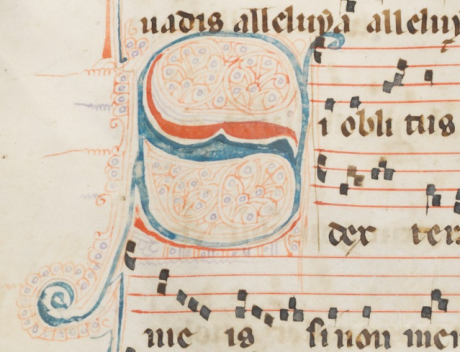 uadis alleluya alleluy
S
i obli tus
dex ter
me is si non mem